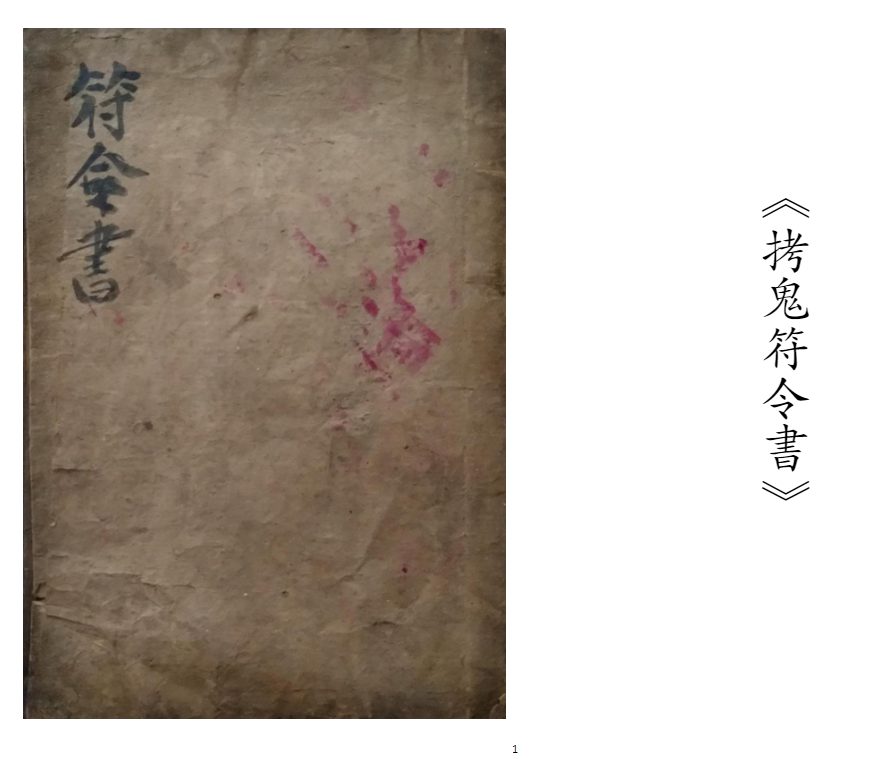 符令書
《拷鬼符令書》
1